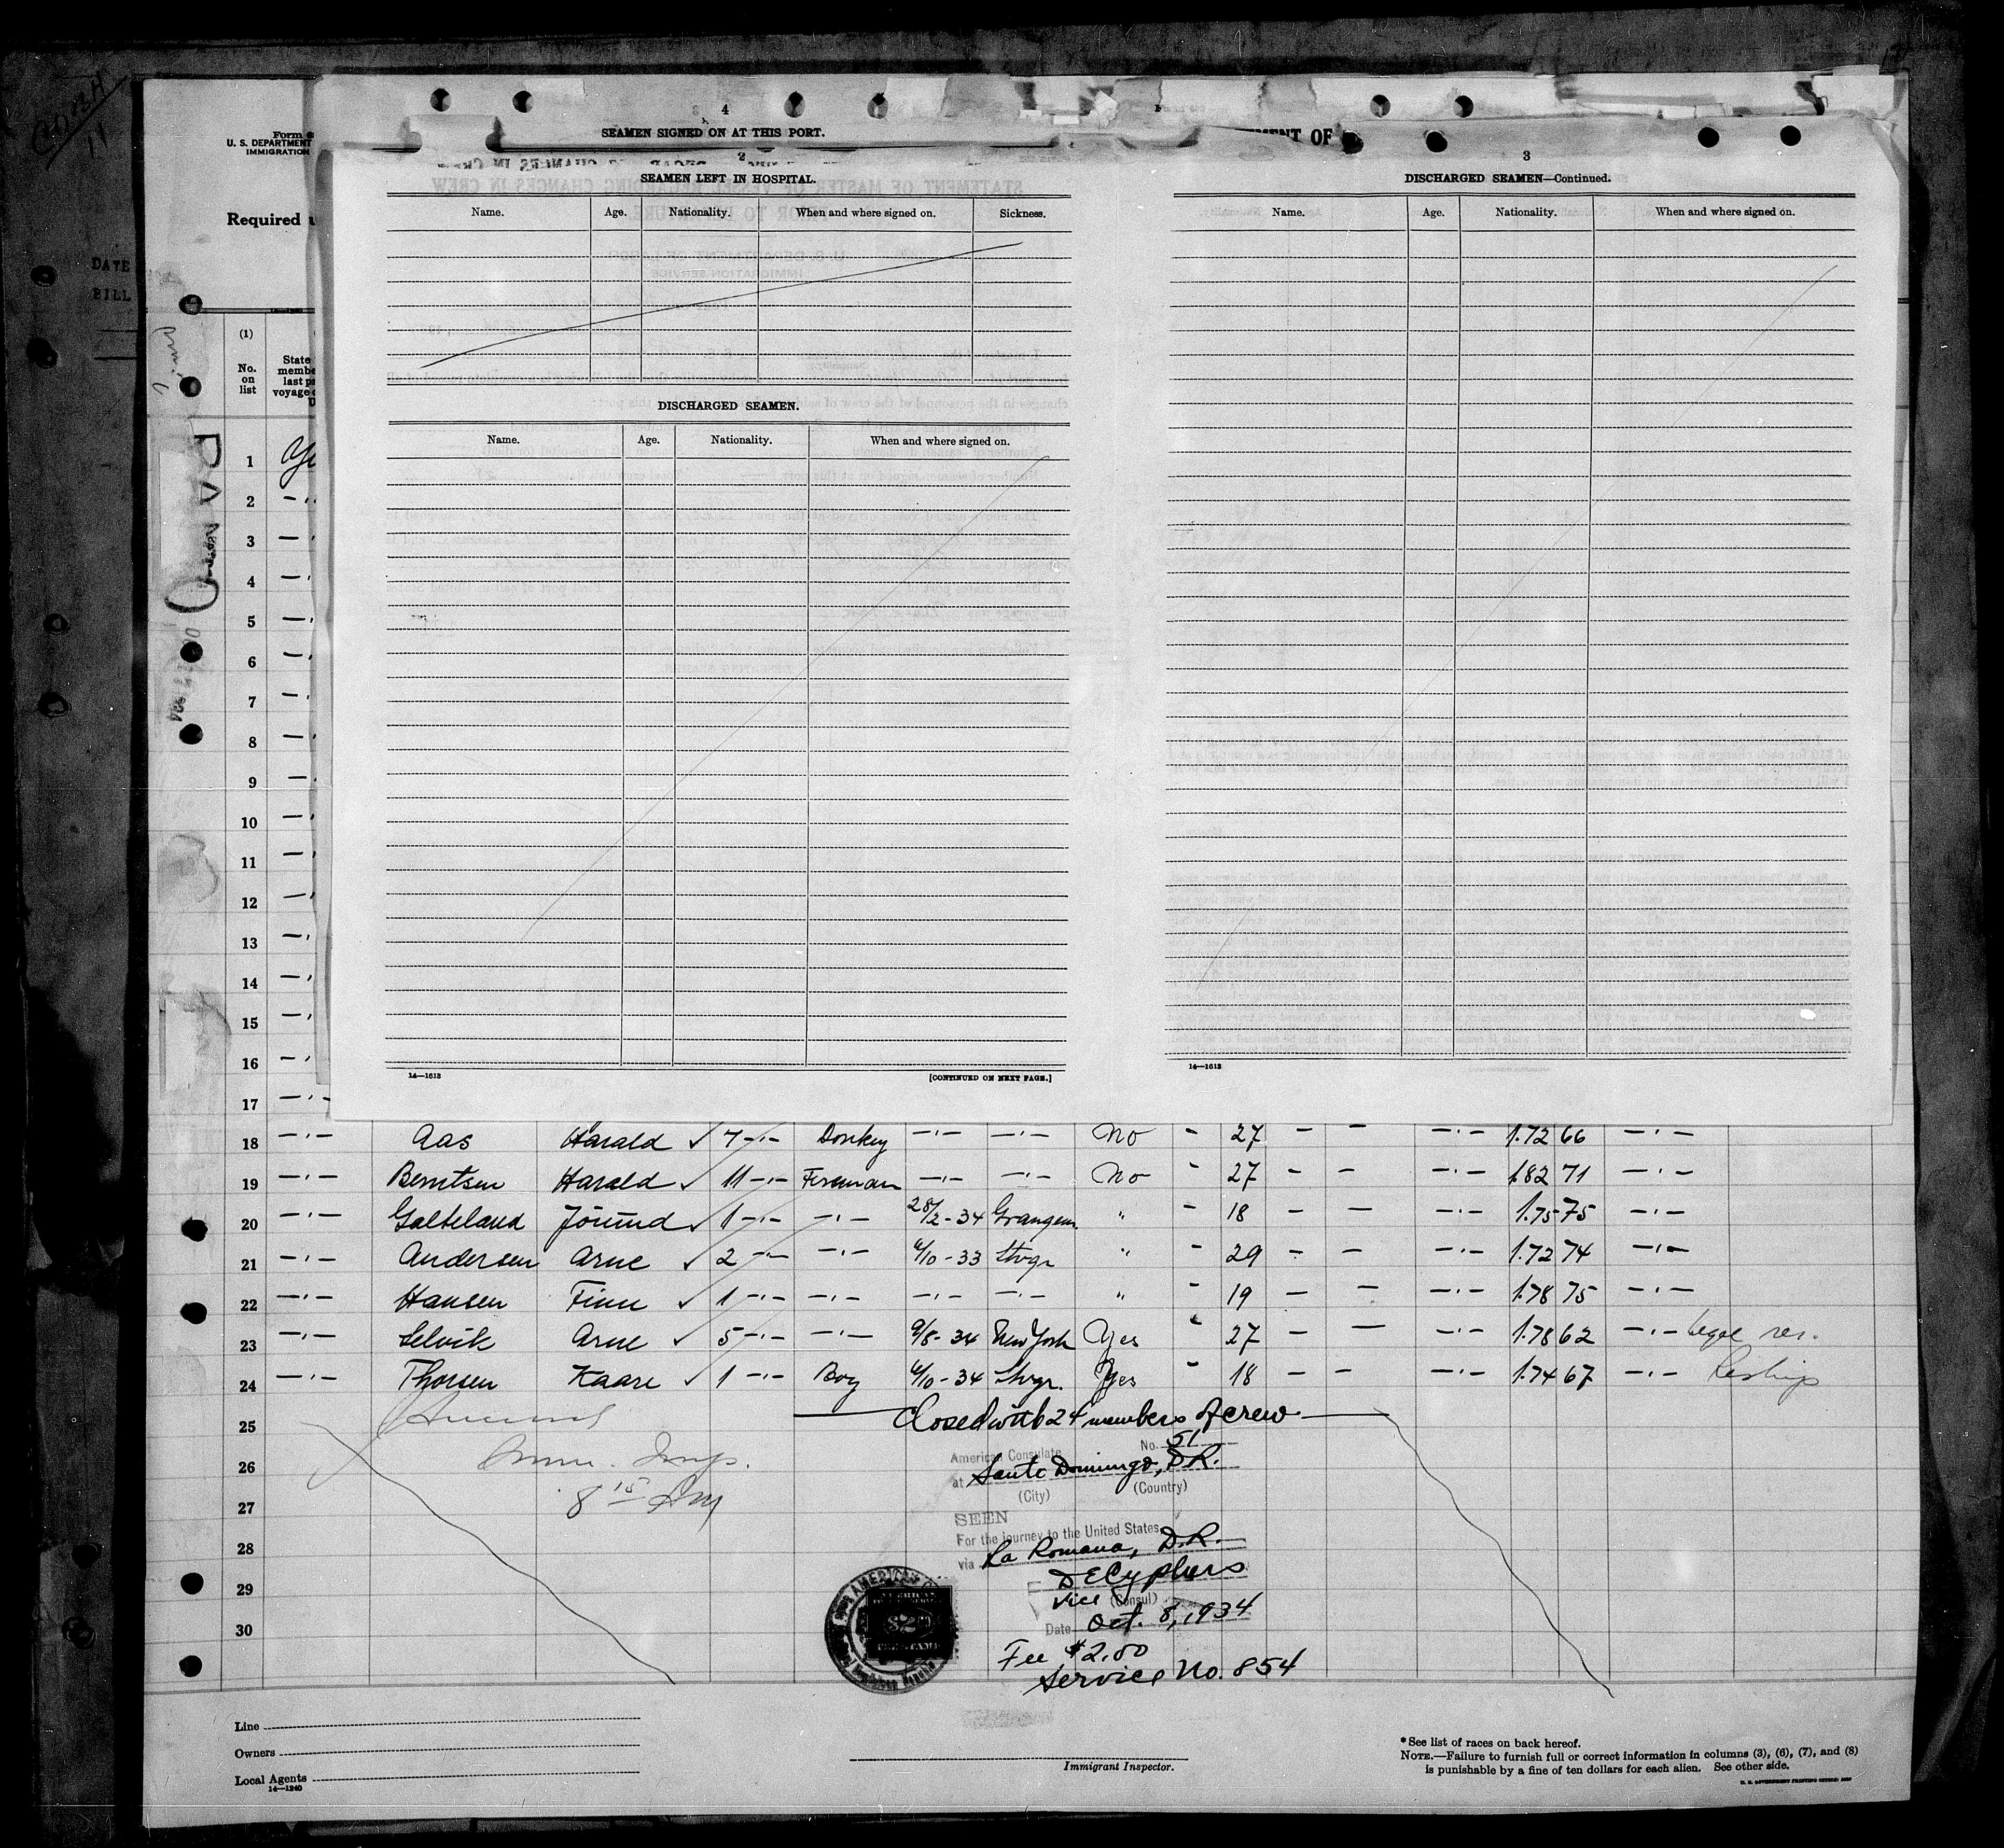 4
SEAMEN SIGNED ON AT THIS PORT.
MENT OF
Form
U. S. DEPARTMENT
IMMIGRATION
Required
DATE
BILL
2
SEAMEN LEFT IN HOSPITAL.
Name. Age. Nationality. When and where signed on. Sickness.
DISCHARGED SEAMEN.
Name. Age. Nationality. When and where signed on.
14—1613 [CONTINUED ON NEXT PAGE.]
3
DISCHARGED SEAMEN—Continued.
Name. Age. Nationality. When and where signed on.
14—1613
(1)
No. on list
State
membe
last p
voyage
1
2
3
4
5
6
7
8
9
10
11
12
13
14
15
16
17
18 —·— Aas Harald ✓ 7 —·— Donkey —·— —·— No " 27 — — —·— 1.72 66 —·—
19 —·— Berntsen Harald ✓ 11 —·— Fireman —·— —·— No " 27 — — —·— 1.82 71 —·—
20 —·— Galteland ✓ 1 —·— —·— 28/2-34 Grangem. " " 18 — — —·— 1.75 75 —·—
21 —·— Andersen Arne ✓ 2 —·— —·— 6/10-33 Stvgr " " 29 — — —·— 1.72 74 —·—
22 —·— Hansen Finn ✓ 1 —·— —·— —·— —·— " " 19 — — —·— 1.78 75 —·—
23 —·— Selvik Arne ✓ 5 —·— —·— 9/8-34 New York Yes " 27 — — —·— 1.78 62 —·— legal res.
24 —·— Thorsen Kaare ✓ 1 —·— Boy 6/10-34 Stvgr. Yes " 18 — — —·— 1.74 67 —·—
25 Closed with 24 members of crew
American Consulate No. 51
26 Imm. Insp. at Santo Domingo, D.R.
(City) (Country)
27 8 15 AM
SEEN
28 For the journey to the United States
via La Romana, D.R.
29 D E Cyphers
Vice (Consul)
30 Date Oct. 8, 1934
Fee $2.00
Service No. 854
Line
Owners
Local Agents
14—1240
Immigrant Inspector.
*See list of races on back hereof.
NOTE.—Failure to furnish full or correct information in columns (3), (6), (7), and (8)
is punishable by a fine of ten dollars for each alien. See other side.